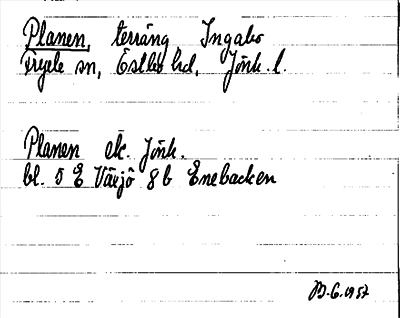 Planen, terräng Ingabo
Fryele sn, Östbo hd, Jönk. l.
Planen ek. Jönk.
bl. 5 E Växjö 8 b Enebacken
B.G. 1957